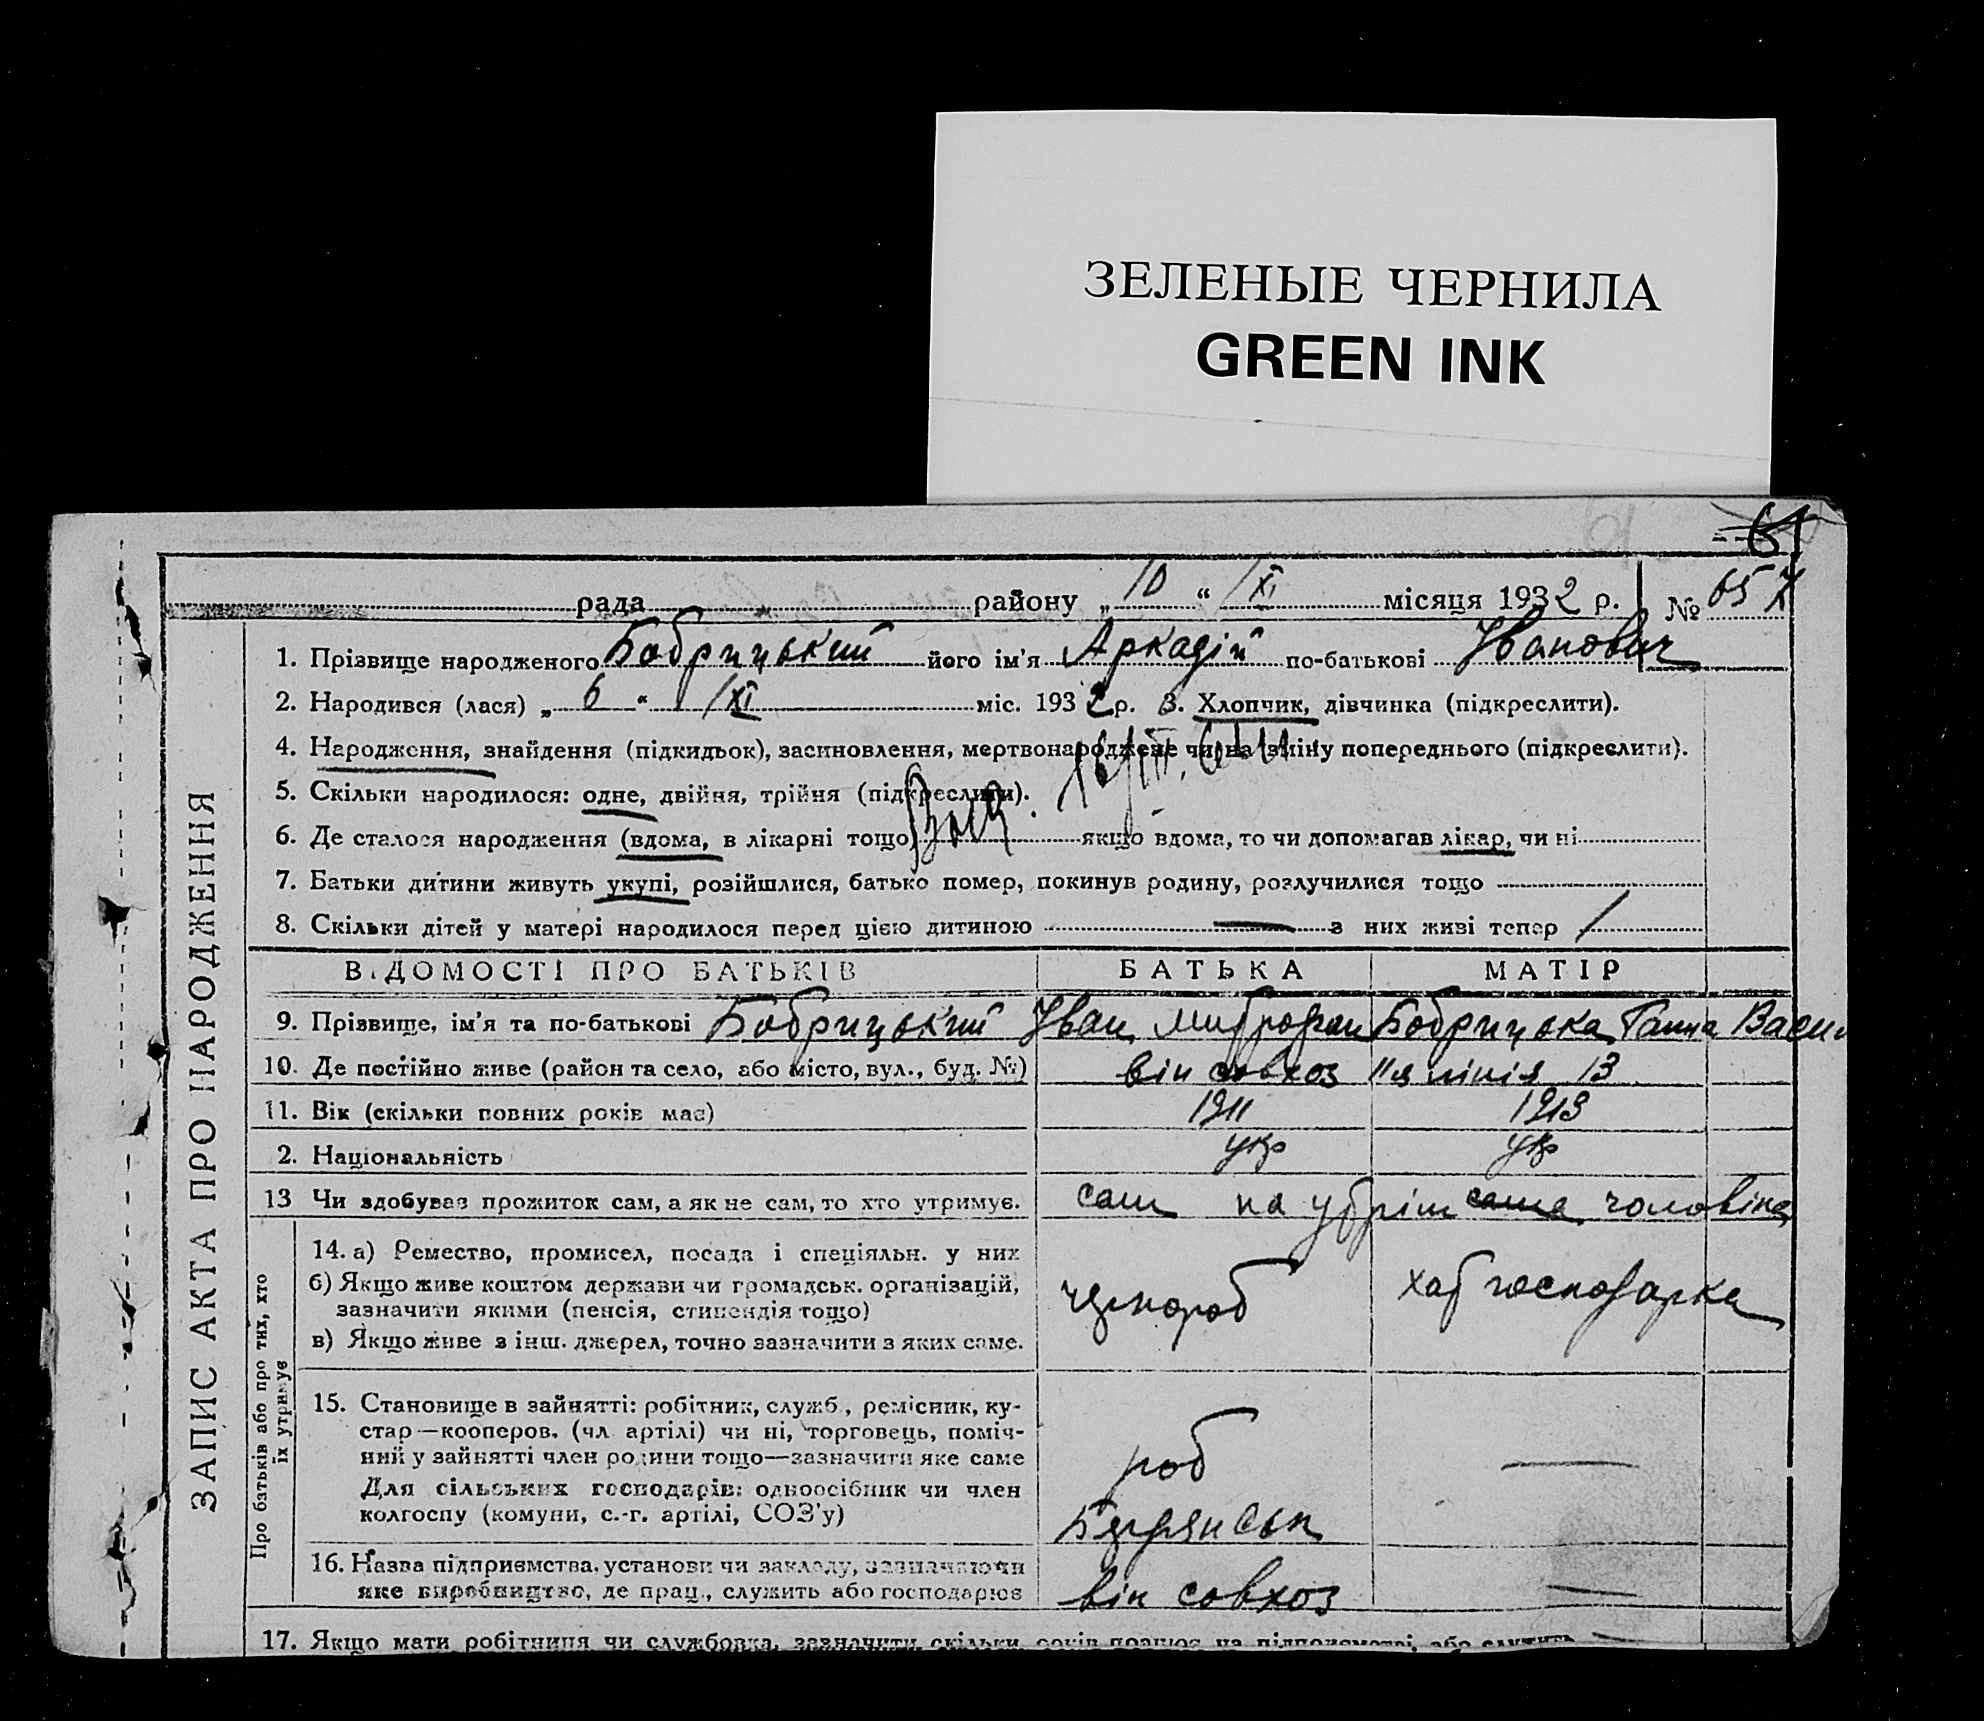 ЗЕЛЕНЫЕ ЧЕРНИЛА
GREEN INK
61
рада района „ 10 “ /XI місяця 1932 р. № 657
ЗАПИС АКТА ПРО НАРОДЖЕННЯ
1. Прізвище народженого Бобрицький його ім'я Аркадій по-батькові Іванович
2. Народився (лася) „ 6 “ /XI міс. 1932 р. 3. Хлопчик, дівчинка (підкреслити).
4. Народження, знайдення (підкидьок), засиновлення, мертвонароджене чи на зміну попереднього (підкреслити).
5. Скільки народилося: одне, двійня, трійня (підкреслити).
6. Де сталося народження (вдома, в лікарні тощо) якщо вдома, то чи допомагав лікар, чи ні
7. Батьки дитини живуть укупі, розійшлися, батько помер, покинув родину, розлучилися тощо
8. Скільки дітей у матері народилося перед цією дитиною — з них живі тепер /
ВІДОМОСТІ ПРО БАТЬКІВ БАТЬКА МАТІР
9. Прізвище, ім'я та по-батькові Бобрицький Іван Бобрицька Ганна Васи
10. Де постійно живе (район та село, або місто, вул., буд. №) він совхоз 11я лінія 13
11. Вік (скільки повних років має) 1911 1913
2. Національність укр укр
13 Чи здобував прожиток сам, а як не сам, то хто утримує. сам на утрім сама чоловіка
Про батьків або про тих, хто
їх утримує
14. а) Ремество, промисел, посада і спеціяльн. у них
б) Якщо живе коштом держави чи громадськ. організацій,
зазначити якими (пенсія, стипендія тощо)
в) Якщо живе з інш. джерел, точно зазначити з яких саме.
чорнороб господарка
15. Становище в зайнятті: робітник, служб., ремісник, ку-
стар—кооперов. (чл. артілі) чи ні, торговець, поміч-
ний у зайнятті член родини тощо—зазначити яке саме
Для сільських господарів: одноосібник чи член
колгоспу (комуни, с.-г. артілі, СОЗ'у)
роб —
16. Назва підприємства, установи чи закладу, зазначаючи
яке виробництво, де прац., служить або господарює
він совхоз —
17. Якщо мати робітниця чи службовка, зазначити скільки років працює на підприємстві, або служить